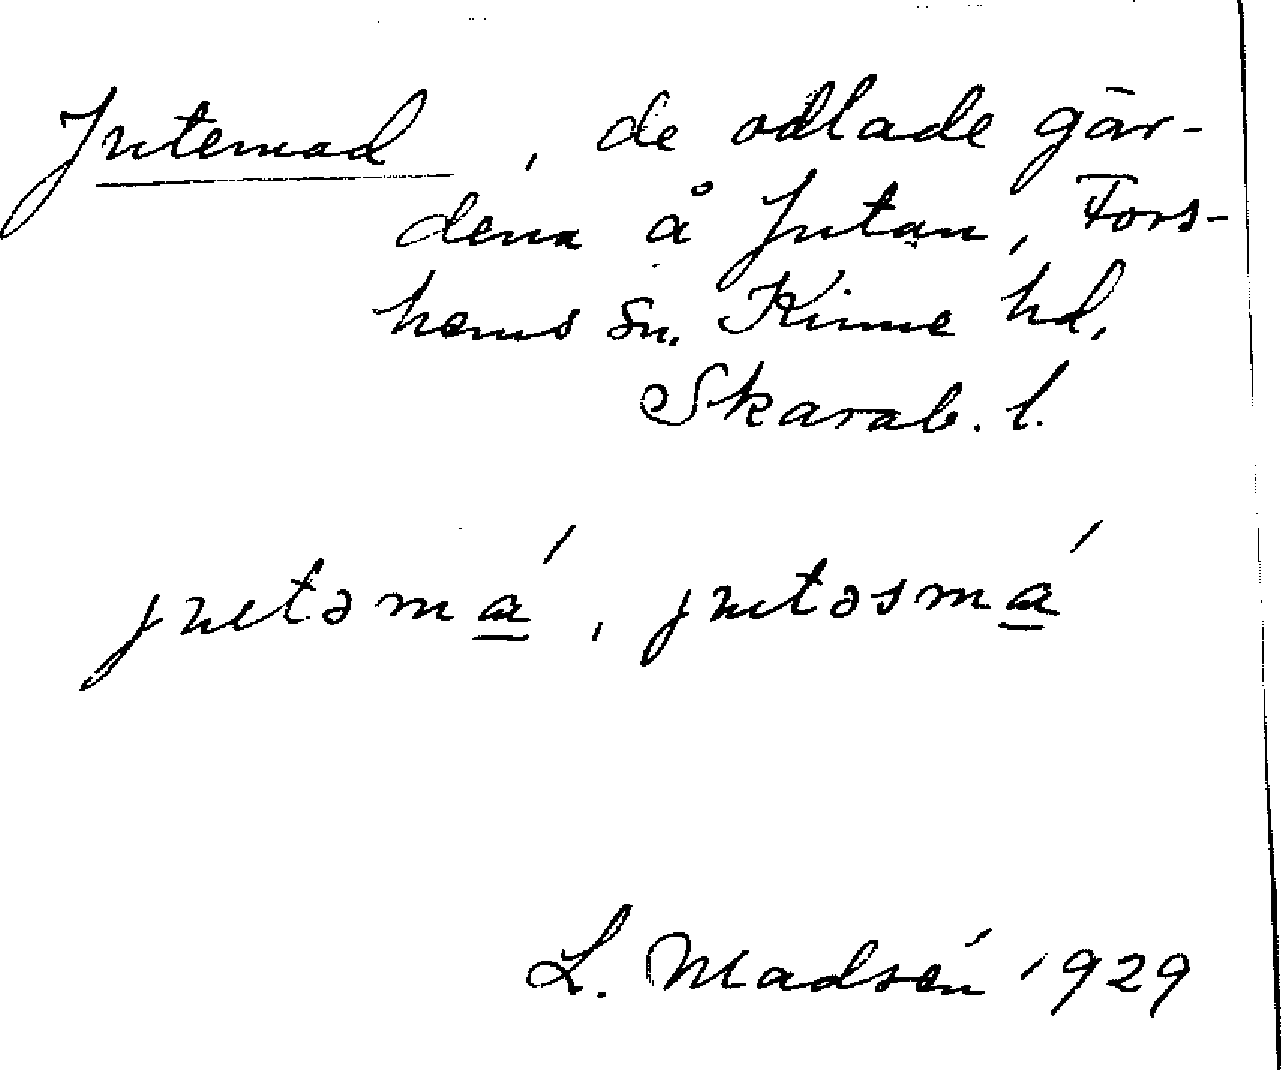 Jutemad, de odlade går-
dena å Jutan, Fors-
hems sn. Kinne hd,
Skarab. l.
jutəmá, jutəsmá
L. Madsén 1929